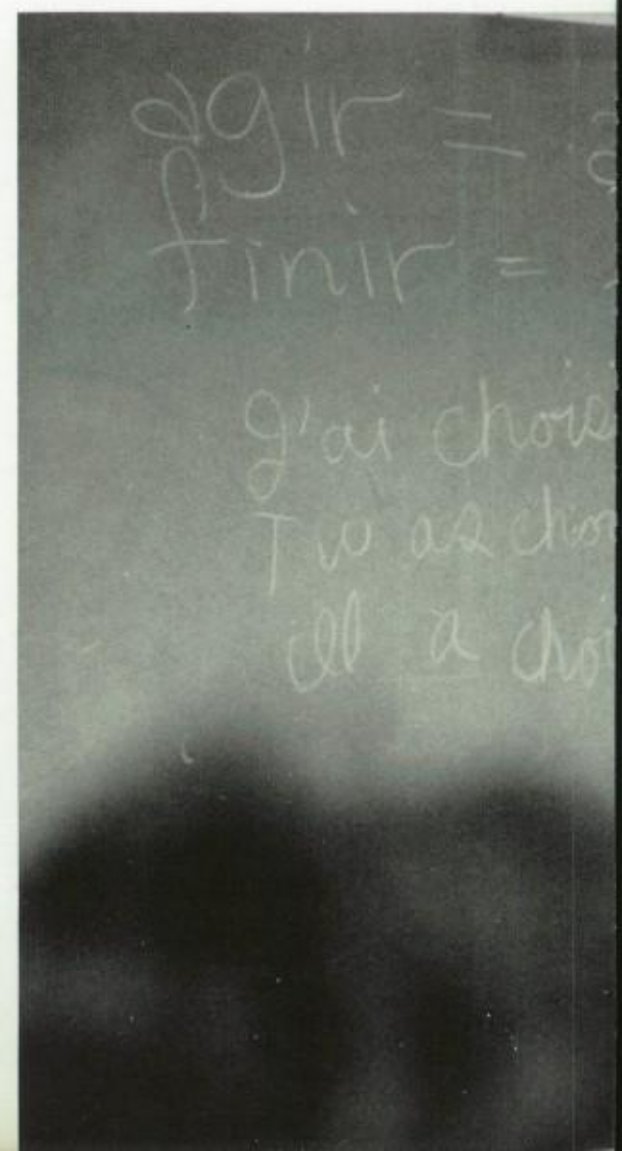 agir =
finir =
J'ai chois
Tu as choi
ill a choi